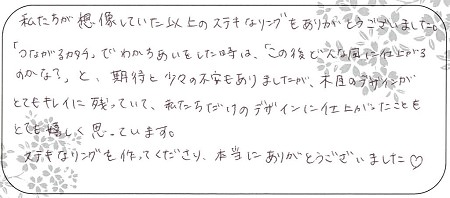 私たちが想像していた以上のステキなリングをありがとうございました。
「つながるカタチ」でわかちあいをした時は、「この後どんな風に仕上がる
のかな?」と、期待と少々の不安もありましたが、木目のデザインが
とてもキレイに残っていて、私たちだけのデザインに仕上がったことも
とても嬉しく思っています。
ステキなリングを作ってくださり、本当にありがとうございました♡